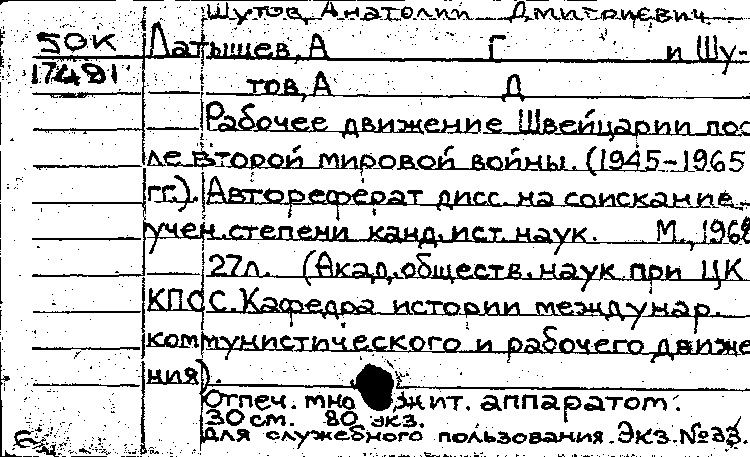 Шутов, Анатолий Дмитриевич
50К Латышев, А Г и Шу-
17481 тов, А Д
Рабочее движение Швейцарии пос
ле второй мировой войны. (1945-1965
гг.). Автореферат дисс. на соискание
учен. степени канд. ист. наук. М., 1968
27л. (Акад. обществ. наук при ЦК
КПСС. Кафедра истории междунар.
коммунистического и рабочего движе
ния).
Отпеч. мно жит. аппаратом.
30 см. 80 экз.
Для служебного пользования. Экз. №33.